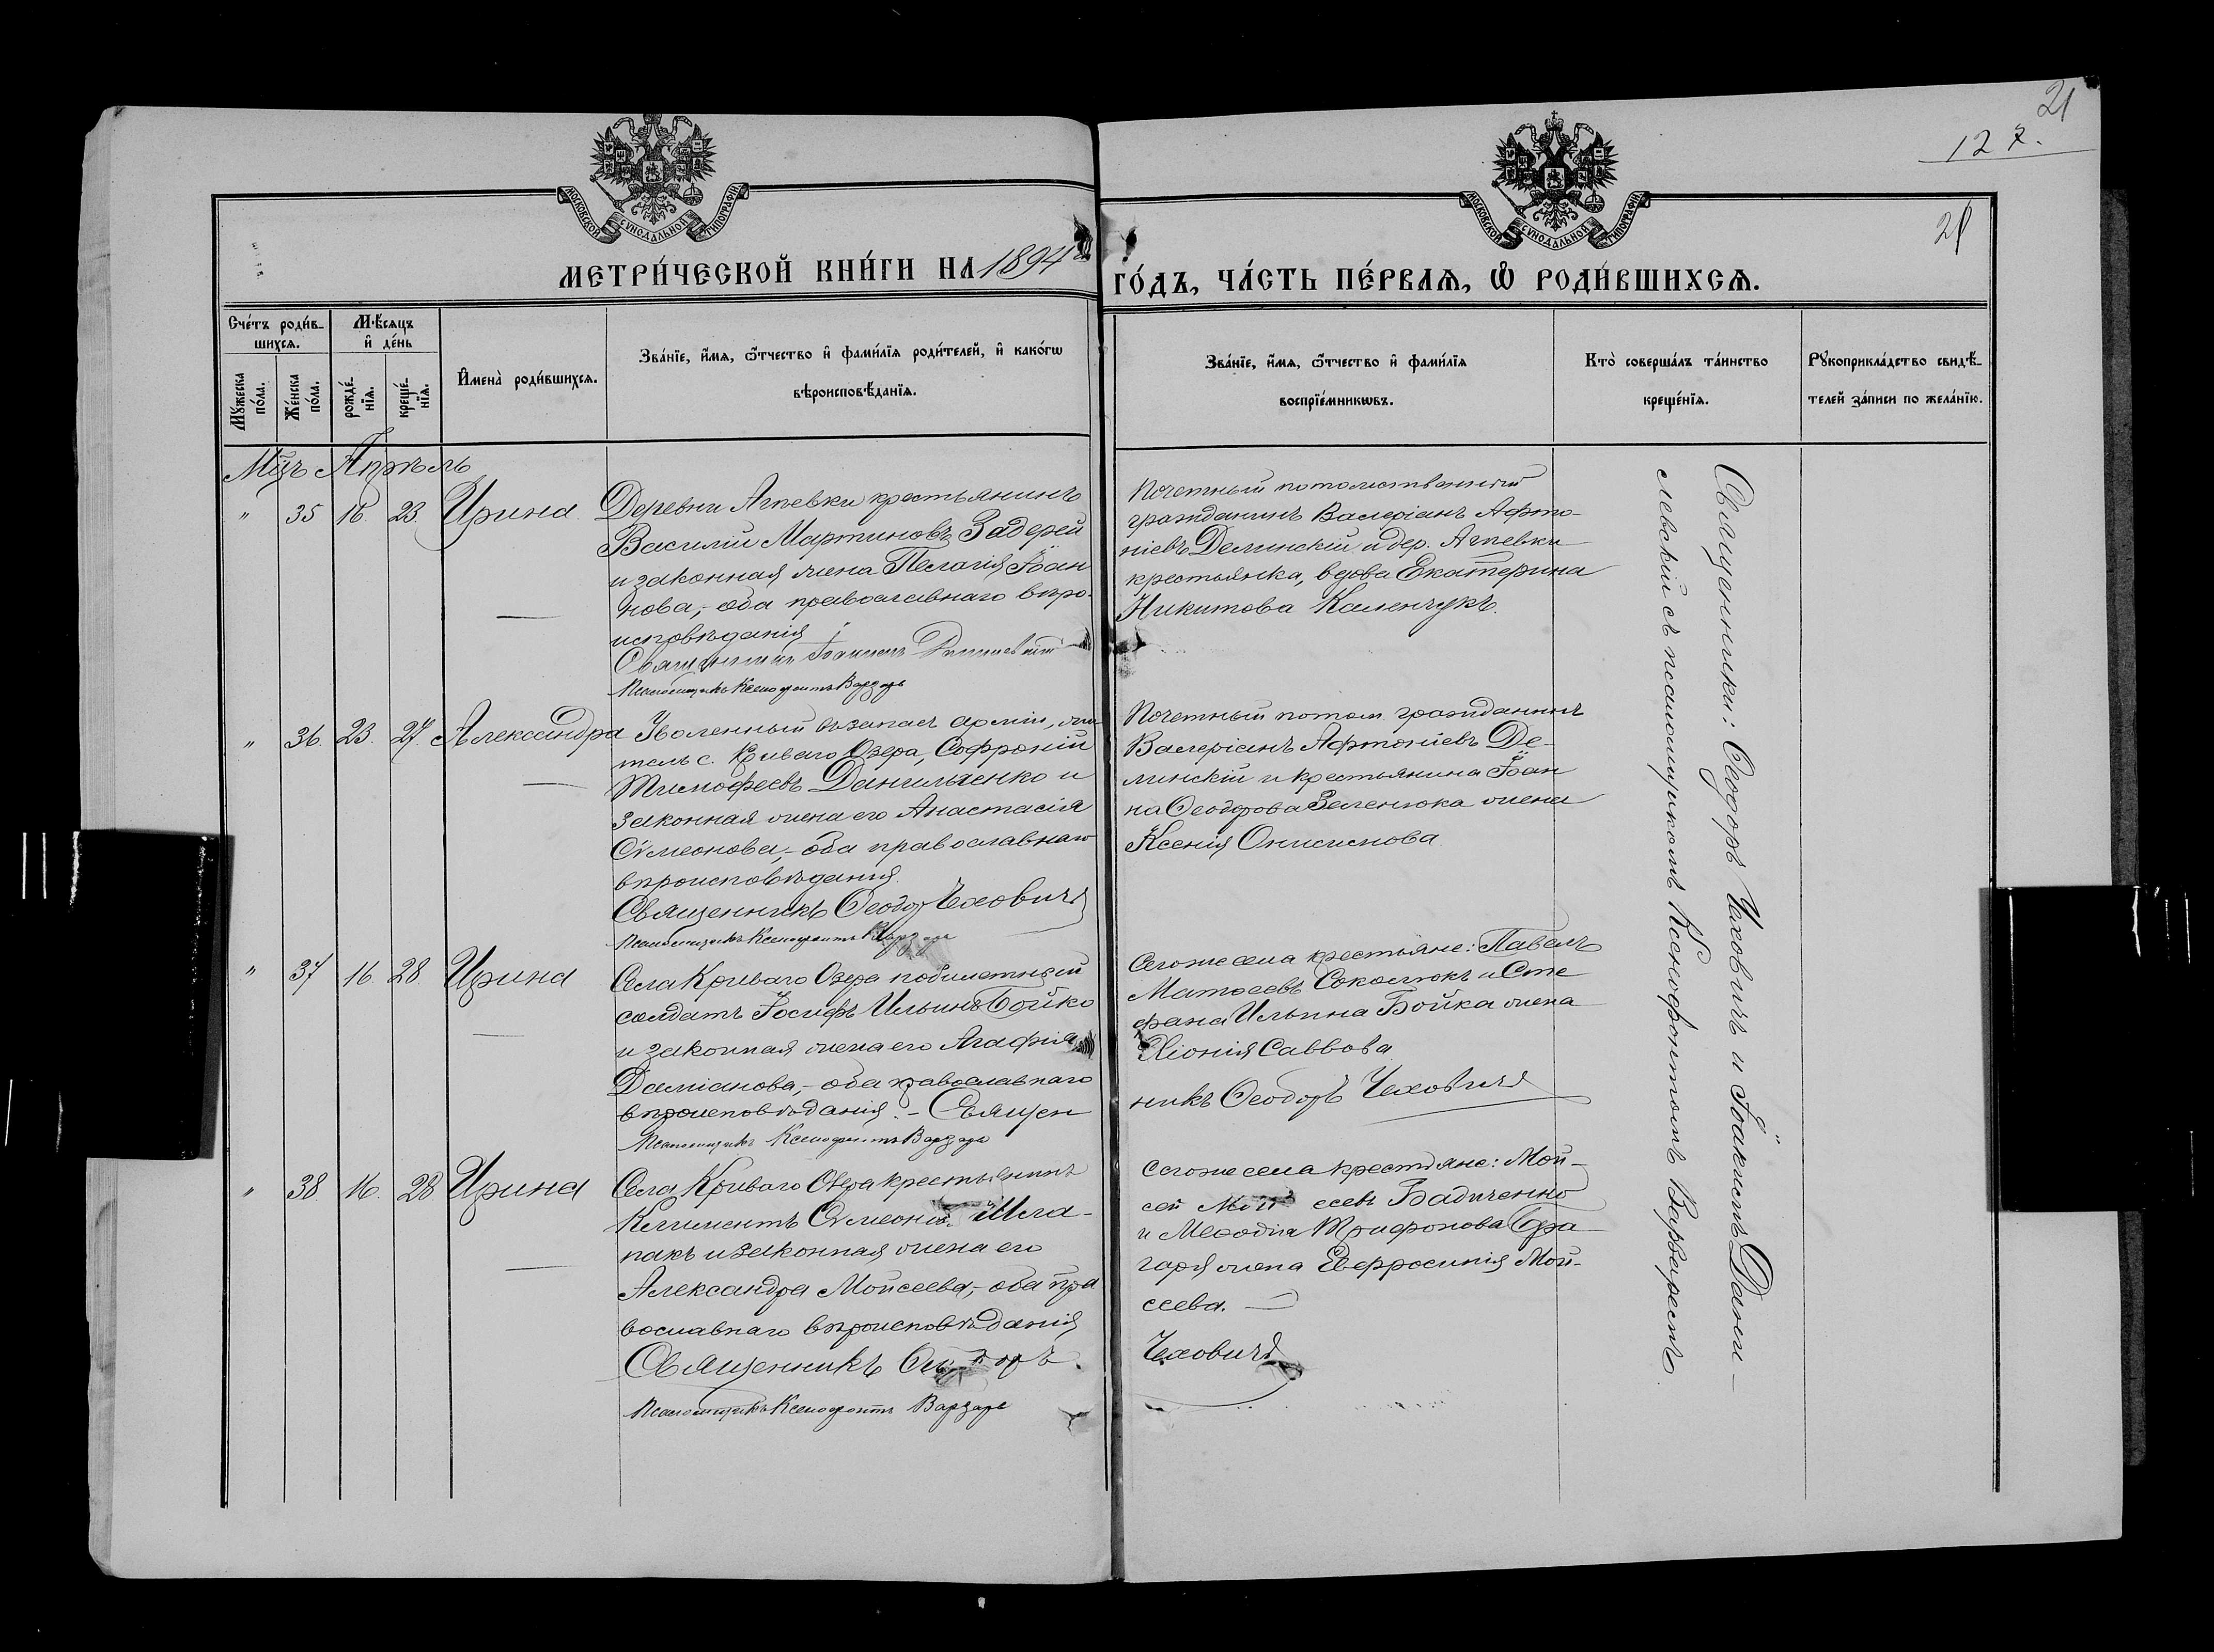 21
127.
21
МОСКОВСКОЙ СѴНОДАЛЬНОЙ ТИПОГРАФІИ
МОСКОВСКОЙ СѴНОДАЛЬНОЙ ТИПОГРАФІИ
МЕТРИ́ЧЕСКОЙ КНИ́ГИ НА 1894 ГО́ДЪ, ЧА́СТЬ ПЕ́РВАѦ, Ѡ҆ РОДИ́ВШИХСѦ.
Сче́тъ роди́в-
шихсѧ.
Мꙋ́жеска по́ла.
Же́нска по́ла.
Мѣ́сѧцъ
и҆ де́нь
рожде́-
нїѧ.
креще́-
нїѧ.
И҆мена̀ роди́вшихсѧ.
Зва́нїе, и҆́мѧ, ѻ҆́тчество и҆ фами́лїѧ роди́телей, и҆ како́гѡ
вѣроисповѣ́данїѧ.
Зва́нїе, и҆́мѧ, ѻ҆́тчество и҆ фами́лїѧ
воспрїе́мникѡвъ.
Кто̀ соверша́лъ та́инство
креще́нїѧ.
Рꙋкоприкла́дство свидѣ́-
телей за́писи по жела́нїю.
Мцъ Апрѣль
" 35 16. 23. Ирина
Деревни Агѣевки крестьянинъ
Василій Мартиновъ Задерей
и законная жена Пелагія Іоан
нова,- оба православнаго вѣро-
исповѣданія
Священникъ Іоакимъ Данилевскій
Псаломщикъ Ксенофонтъ Варзарь
Почетный потомственный
гражданинъ Валеріанъ Афто-
ніевъ Делинскій и дер. Агѣевки
крестьянка, вдова Екатерина
Никитова Каленчукъ.
" 36. 23. 27. Александра
Уволенный въ запасъ арміи, жи
тель с. Криваго Озера, Софроній
Тимофеевъ Данильченко и
законная жена его Анастасія
Сѵмеонова,- оба православнаго
вѣроисповѣданія.
Священникъ Ѳеодоръ Чеховичъ
Псаломщикъ Ксенофонтъ Варзарь
Почетный потом. гражданинъ
Валеріанъ Афтоніевъ Де-
линскій и крестьянина Іоан
на Ѳеодорова Зеленюка жена
Ксенія Онисимова.
" 37 16 28. Ирина
Села Криваго Озера побилетный
солдатъ Іосифъ Ильинъ Бойко
и законная жена его Агафія
Даміанова,- оба православнаго
вѣроисповѣданія.- Священ
никъ Ѳеодоръ Чеховичъ
Псаломщикъ Ксенофонтъ Варзарь
Сегоже села крестьяне: Павелъ
Матѳеевъ Соколюкъ и Сте
фана Ильина Бойка жена
Хіонія Саввова
" 38 16. 28 Ирина
Села Криваго Озера крестьянинъ
Климентъ Сѵмеоновъ Шла-
пакъ и законная жена его
Александра Мойсеева,- оба пра
вославнаго вѣроисповѣданія
Священникъ Ѳеодоръ Чеховичъ
Псаломщикъ Ксенофонтъ Варзарь
Сегоже села крестьяне: Мой-
сей Мойсеевъ Бадиченко
и Меѳодіа Трифонова Бра
гаря жена Евфросинія Мой-
сеева.
Священники: Ѳеодоръ Чеховичъ и Іоакимъ Дани-
левскій съ псаломщикомъ Ксенофонтомъ Варзаремъ.